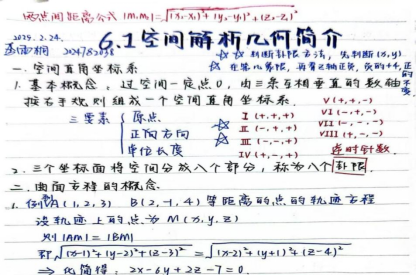 两点间距离公式 |M₁M₂|=√(x₂-x₁)²+(y₂-y₁)²+(z₂-z₁)²
2025.2.24.
6.1空间解析几何简介
☆☆判断卦限方法,先判断(x,y)
在第几象限,再看z轴正负,负的+4,正的不变
一.空间直角坐标系
1.基本概念:过空间一定点O,由三条互相垂直的数轴
按右手规则组成一个空间直角坐标系.
三要素 { 原点 正向方向 单位长度
☆☆ I (+,+,+) V (+,+,-)
II (-,+,+) VI (-,+,-)
III (-,-,+) VII (-,-,-)
IV (+,-,+) VIII (+,-,-)
逆时针数.
2.三个坐标面将空间分成八个部分,称为八个卦限
二.曲面方程的概念.
1.例 A(1,2,3) B(2,-1,4)等距离的点的轨迹方程
设轨迹上的点为M(x,y,z)
则|AM|=|BM|
即√(x-1)²+(y-2)²+(z-3)² = √(x-2)²+(y+1)²+(z-4)²
⇒化简得:2x-6y+2z-7=0.